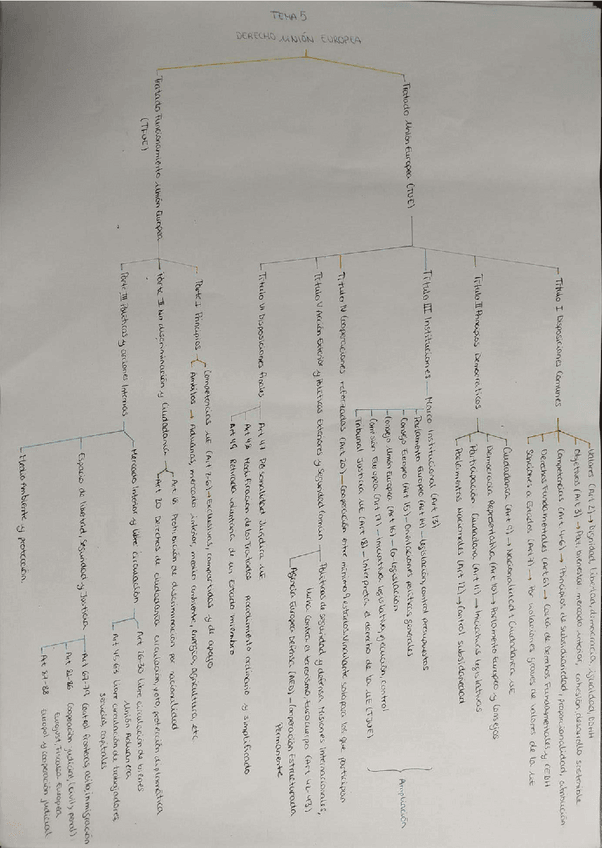 TEMA 5
DERECHO UNIÓN EUROPEA
Tratado Unión Europea (TUE)
Título I Disposiciones Comunes
Valores (Art 2) → Dignidad, libertad, democracia, igualdad, DDHH
Objetivos (Art 3) → Paz, bienestar, mercado interior, cohesión, desarrollo sostenible
Competencias (Art 4-5) → Principios de subsidiariedad, proporcionalidad, atribución
Derechos Fundamentales (Art 6) → Carta de Derechos Fundamentales y CEDH
Sanciones a Estados (Art 7) → Por violaciones graves de valores de la UE
Título II Principios Democráticos
Ciudadanía (Art 9) → Nacionalidad + Ciudadanía UE
Democracia Representativa (Art 10) → Parlamento Europeo y Consejos
Participación Ciudadana (Art 11) → Iniciativas legislativas
Parlamentos nacionales (Art 12) → Control subsidiariedad
Título III Instituciones — Marco Institucional (Art 13)
Parlamento Europeo (Art 14) → Legislación, control, presupuestos
Consejo Europeo (Art 15) → Orientaciones políticas generales
Consejo Unión Europea (Art 16) → Co legislación
Comisión Europea (Art 17) → Iniciativa legislativa, ejecución, control
Tribunal Justicia UE (Art 19) → Interpreta el derecho de la UE (TJUE)
Ampliación
Título IV Cooperaciones reforzadas (Art 20) → Cooperación entre mínimo 9 estados. Vinculante solo para los que participan
Título V Acción Exterior y Políticas Exteriores y Seguridad Común
Políticas de Seguridad y defensa: Misiones internacionales,
lucha contra el terrorismo, Eurocuerpo (Art 42-43)
Agencia Europea Defensa (AED) → Cooperación Estructurada
Permanente
Título VI Disposiciones finales
Art 47 Personalidad Jurídica UE
Art 48 Modificación de los tratados: procedimiento ordinario y simplificado
Art 49 Retirada voluntaria de un estado miembro
Tratado Funcionamiento Unión Europea
(TFUE)
Parte I Principios
Competencias UE (Art 2-6) → Exclusivas, compartidas y de apoyo
Ámbitos → Aduanas, mercado interior, medio ambiente, energía, agricultura, etc
Parte II No discriminación y Ciudadanía
Art 18 Prohibición de discriminación por nacionalidad
Art 20 Derechos de ciudadanía: circulación, voto, protección diplomática
Parte III Políticas y acciones Internas
Mercado Interior y libre circulación
Art 26-30 Libre circulación de bienes
Unión Aduanera
Art 45-64 Libre circulación de trabajadores
servicios, capitales
Espacio de libertad, Seguridad y Justicia
Art 67-79 Control fronteras, asilo, inmigración
Art 81-86 Cooperación judicial (civil y penal)
Eurojust, Fiscalía Europea
Art 87-88 Europol y cooperación judicial
Medio Ambiente y protección